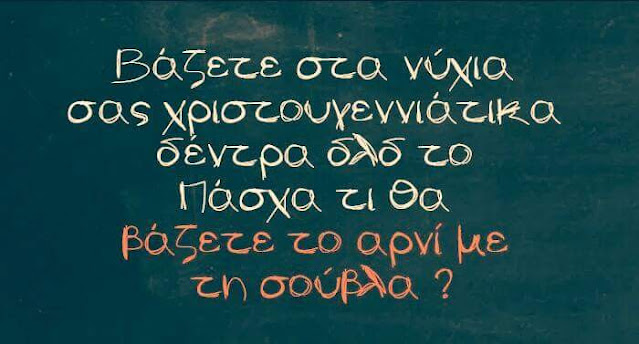 Βάζετε στα νύχια
σας χριστουγεννιάτικα
δέντρα δλδ το
Πάσχα τι θα
βάζετε το αρνί με
τη σούβλα ?